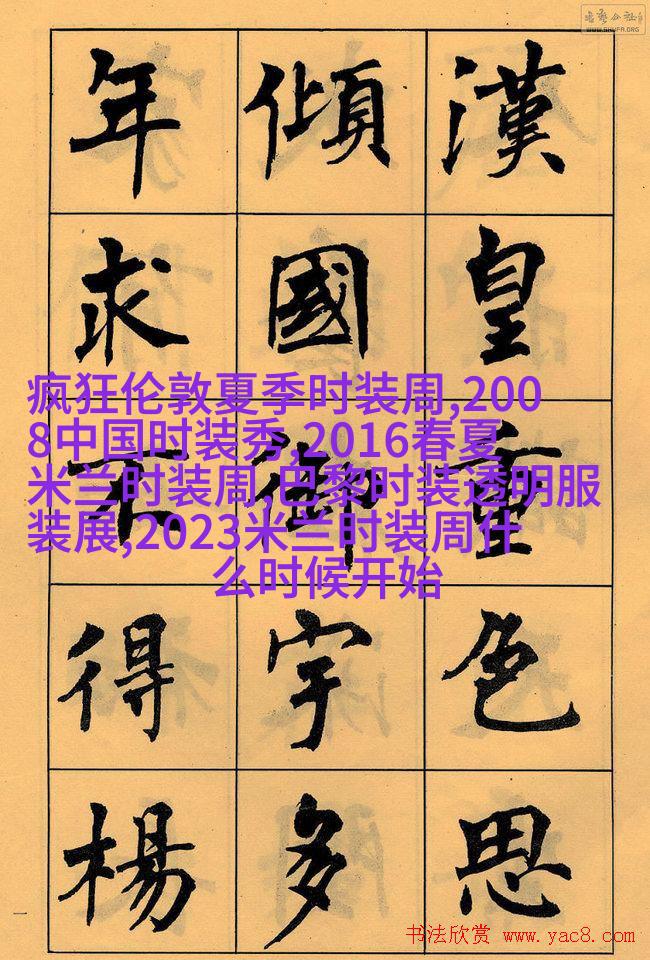 WWW.SHUFA.ORG
漢皇重色思
傾國御宇多
年求不得楊
疯狂伦敦夏季时装周,200
8中国时装秀,2016春夏
米兰时装周,巴黎时装透明服
装展,2023米兰时装周什
么时候开始
一
书法欣赏 www.yac8.com